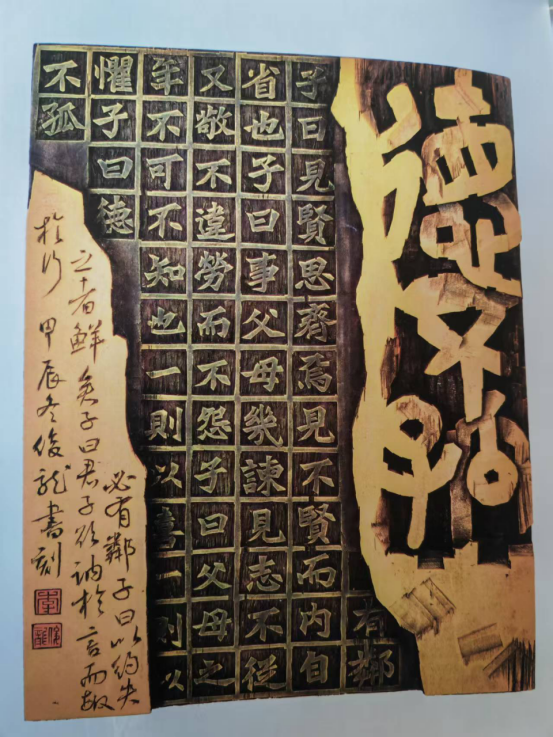 德不孤
有鄰
子曰見賢思齊焉見不賢而內自
省也子曰事父母幾諫見志不從
又敬不違勞而不怨子曰父母之
年不可不知也一則以喜一則以
懼子曰德
不孤
必有鄰子曰以約失
之者鮮矣子曰君子欲訥於言而敏
於行 甲辰冬俊龍書刻